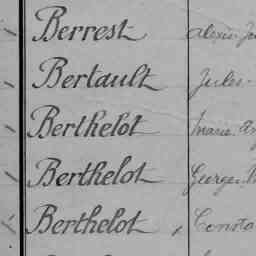 Berrest Alexis
Bertault Jules
Berthelot Marie
Berthelot George
Berthelot